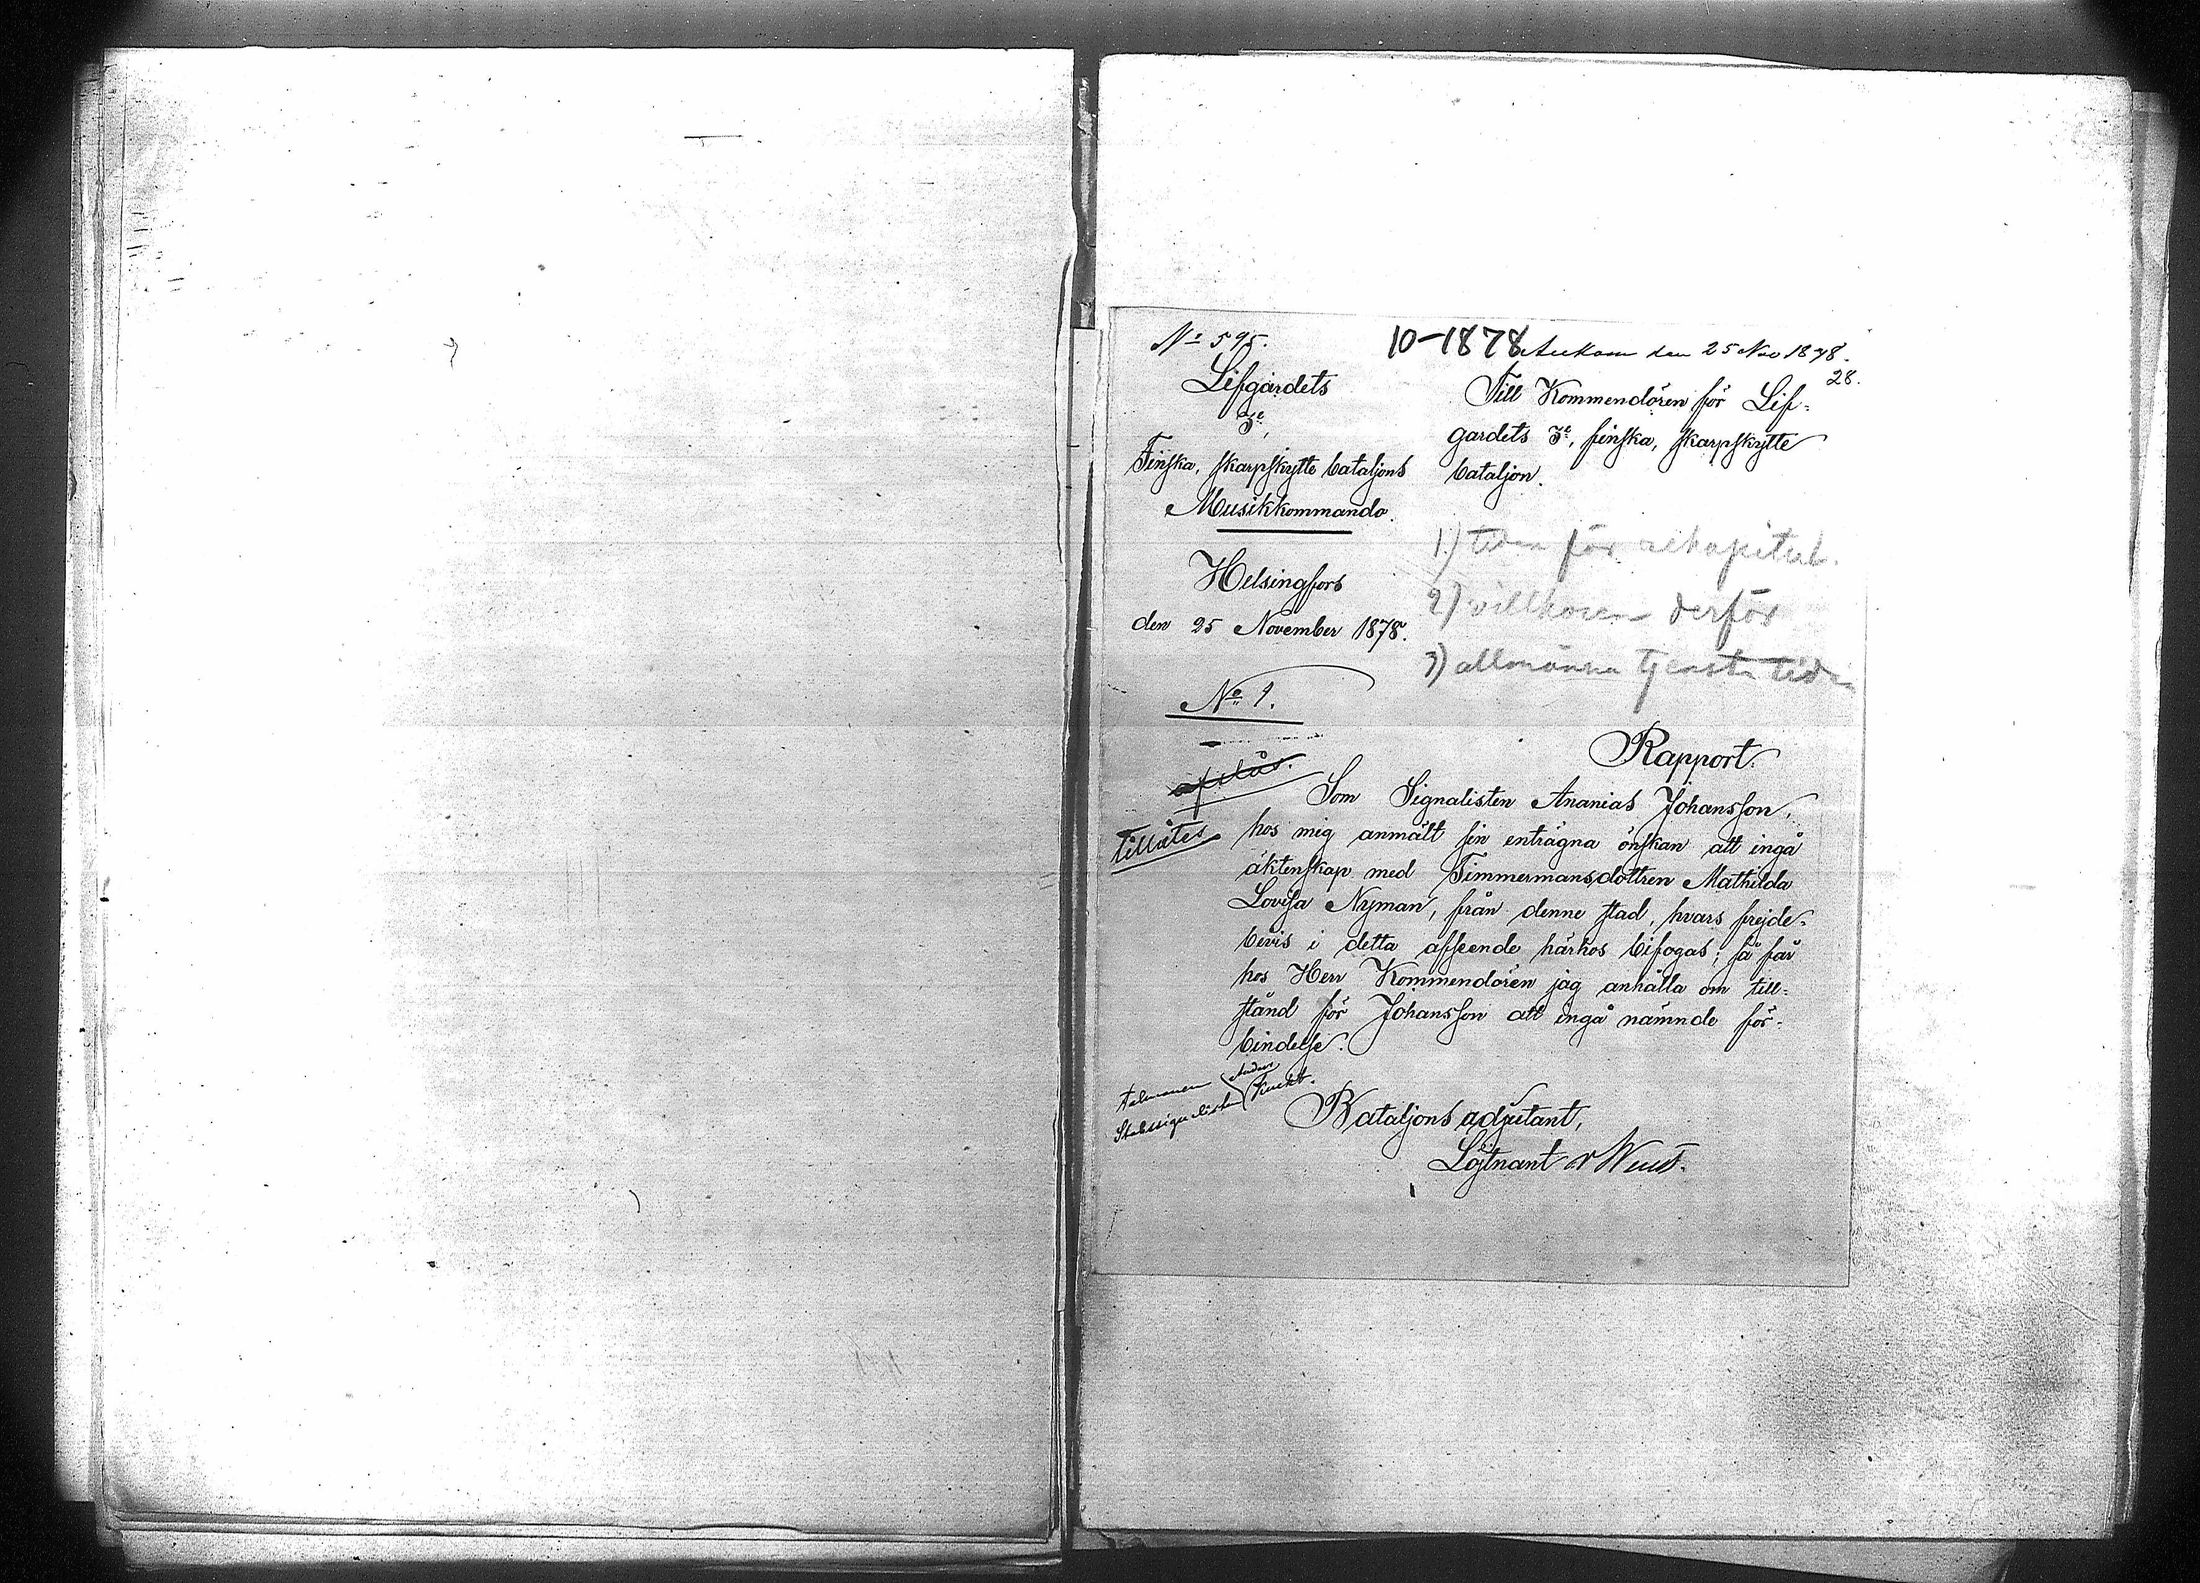 No 595.
10-1878
Ankom den 25 Nov 1878.
28.
Lifgardets
3e,
Finska, skarpskytte bataljons
Musikkommando.
Helsingfors
den 25 November 1878.
No 1.
Till Kommendören för Lif-
gardets 3e, finska, skarpskytte
bataljon.
1.) tiden för
2) villkoren derför
3) allmänna tjenste tiden
Rapport.
afslås.
tillåtes
Som Signalisten Ananias Johansson,
hos mig anmält sin enträgna önskan att ingå
äktenskap med Timmermansdottren Mathilda
Lovisa Nyman, från denne stad, hvars frejde-
bevis i detta afseende härhos bifogas; så får
hos Herr Kommendören jag anhålla om till-
stånd för Johansson att ingå nämnde för-
bindelse.
Bataljons adjutant,
Löjtnant